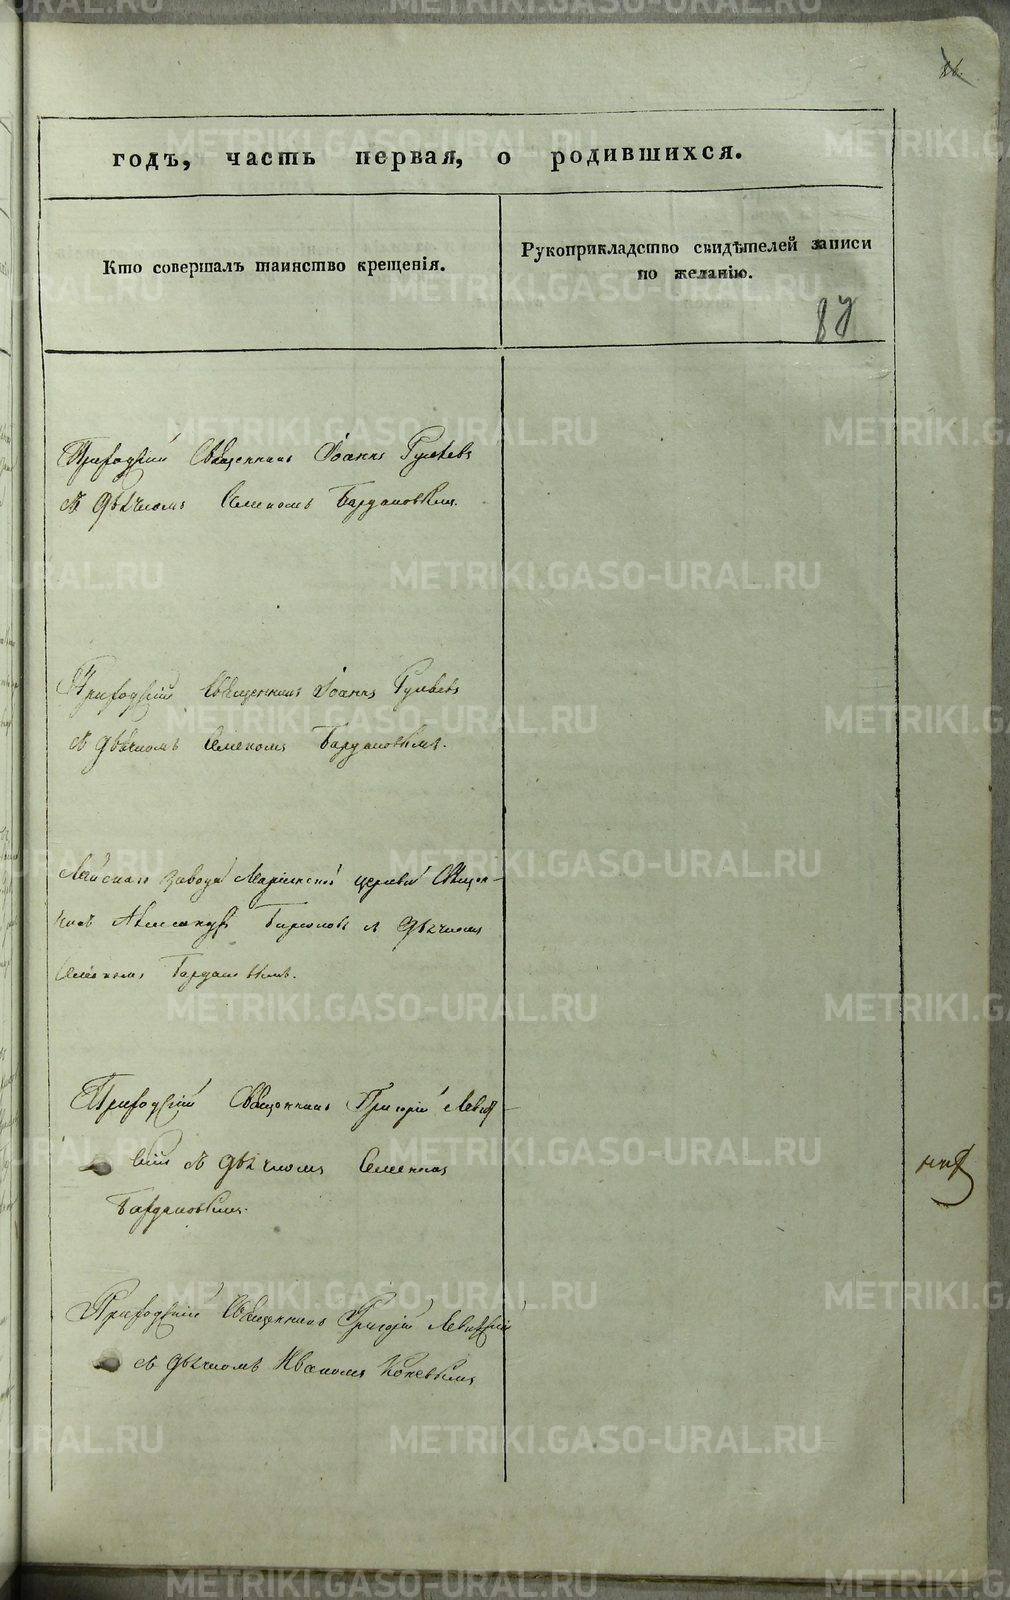 годъ, часть первая, о родившихся.
Кто совершалъ таинство крещенія.
Рукоприкладство свидѣтелей записи
по желанію.
87
Приходскій Священникъ Іоаннъ Гуляевъ
съ Дьячкомъ Семеномъ Бардановымъ.
Приходскій Священникъ Іоаннъ Гуляевъ
съ Дьячкомъ Семеномъ Бардановымъ.
завода Маріинской церкви Священ-
никъ Александръ съ Дьячкомъ
Семеномъ Бардановымъ.
Приходскій Священникъ Григорій Левит-
скій съ Дьячкомъ Семеномъ
Бардановымъ.
Приходскій Священникъ Григорій Левитскій
съ Дьячкомъ Иваномъ Коневымъ
METRIKI.GASO-URAL.RU